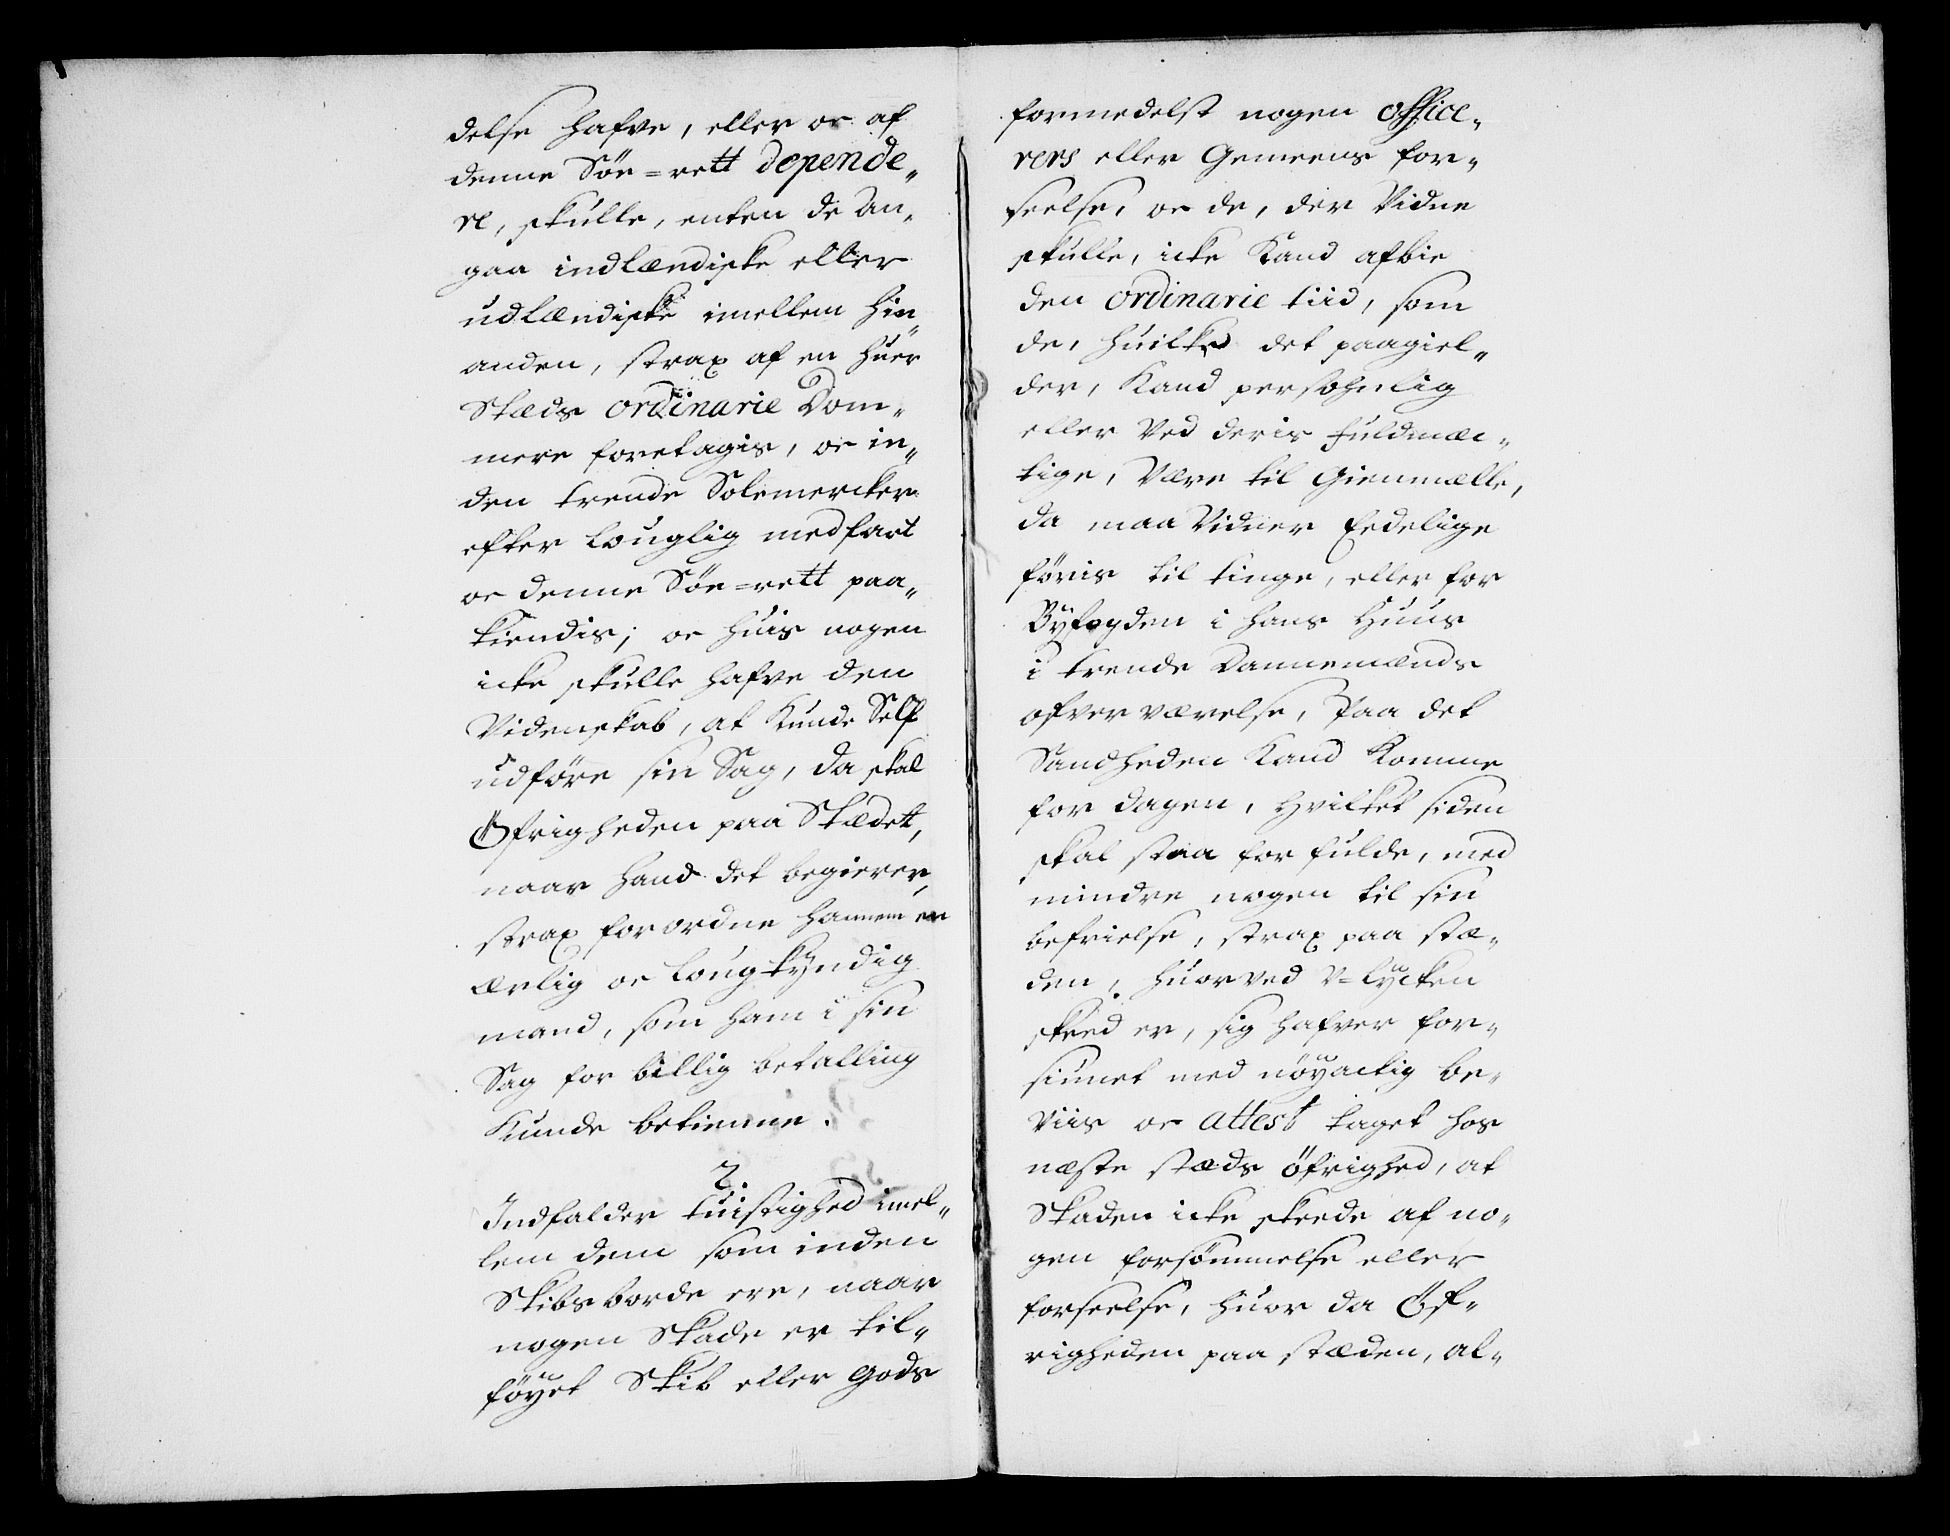 delse hafve, eller oc af
denne Söe=rett depende„
re, skulle, enten de An„
gaa indlændiske eller
udlændiske imellem hin„
anden, strax af en huer
Stæds ordinarie Dom„
mere foretagis, oc in„
den trende Solemercker
efter Louglig medfart
oc denne Söe=rett paa„
kiendis; oc huis nogen
icke skulle hafve den
Videnskab, at kunde Self
udföre sin Sag, da skal
Öfrigheden paa Stædett,
naar hand det begierer,
strax forordne hannem en
ærlig oc Lougkyndig
mand, som ham i sin
Sag for billig betalling
Kunde betienne.
2.
Indfalder tuistighed imel„
lem dem som inden
Skibsborde ere, naar
nogen Skade er til„
föyet Skib eller Gods
formedelst nogen office„
rers eller Gemeens for„
seelse, oc de, der Vidne
skulle, icke Kand afbie
den ordinarie tiid, som
de, huilke det paagiel„
der, Kand persohnlig
eller Ved deris fuldmæc„
tige, Være til Giemmælle,
da maa Vidner Eedelige
föris til tinge, eller for
Byfogden i hans Huus
i trende Dannemænds
ofverværelse, Paa det
Sandheden Kand Komme
for dagen, hvilket siden
skal staa for fulde, med
mindre nogen til sin
befrielse, strax paa stæ„
den, huorved V=lycken
skeed er, sig hafver for„
siunet med nöyactig be„
Viis oc attest taget hos
næste stæds Öfrighed, at
Skaden icke skeede af no„
gen forsömmelse eller
forseelse, huor da Öf„
righeden paa stæden, al„